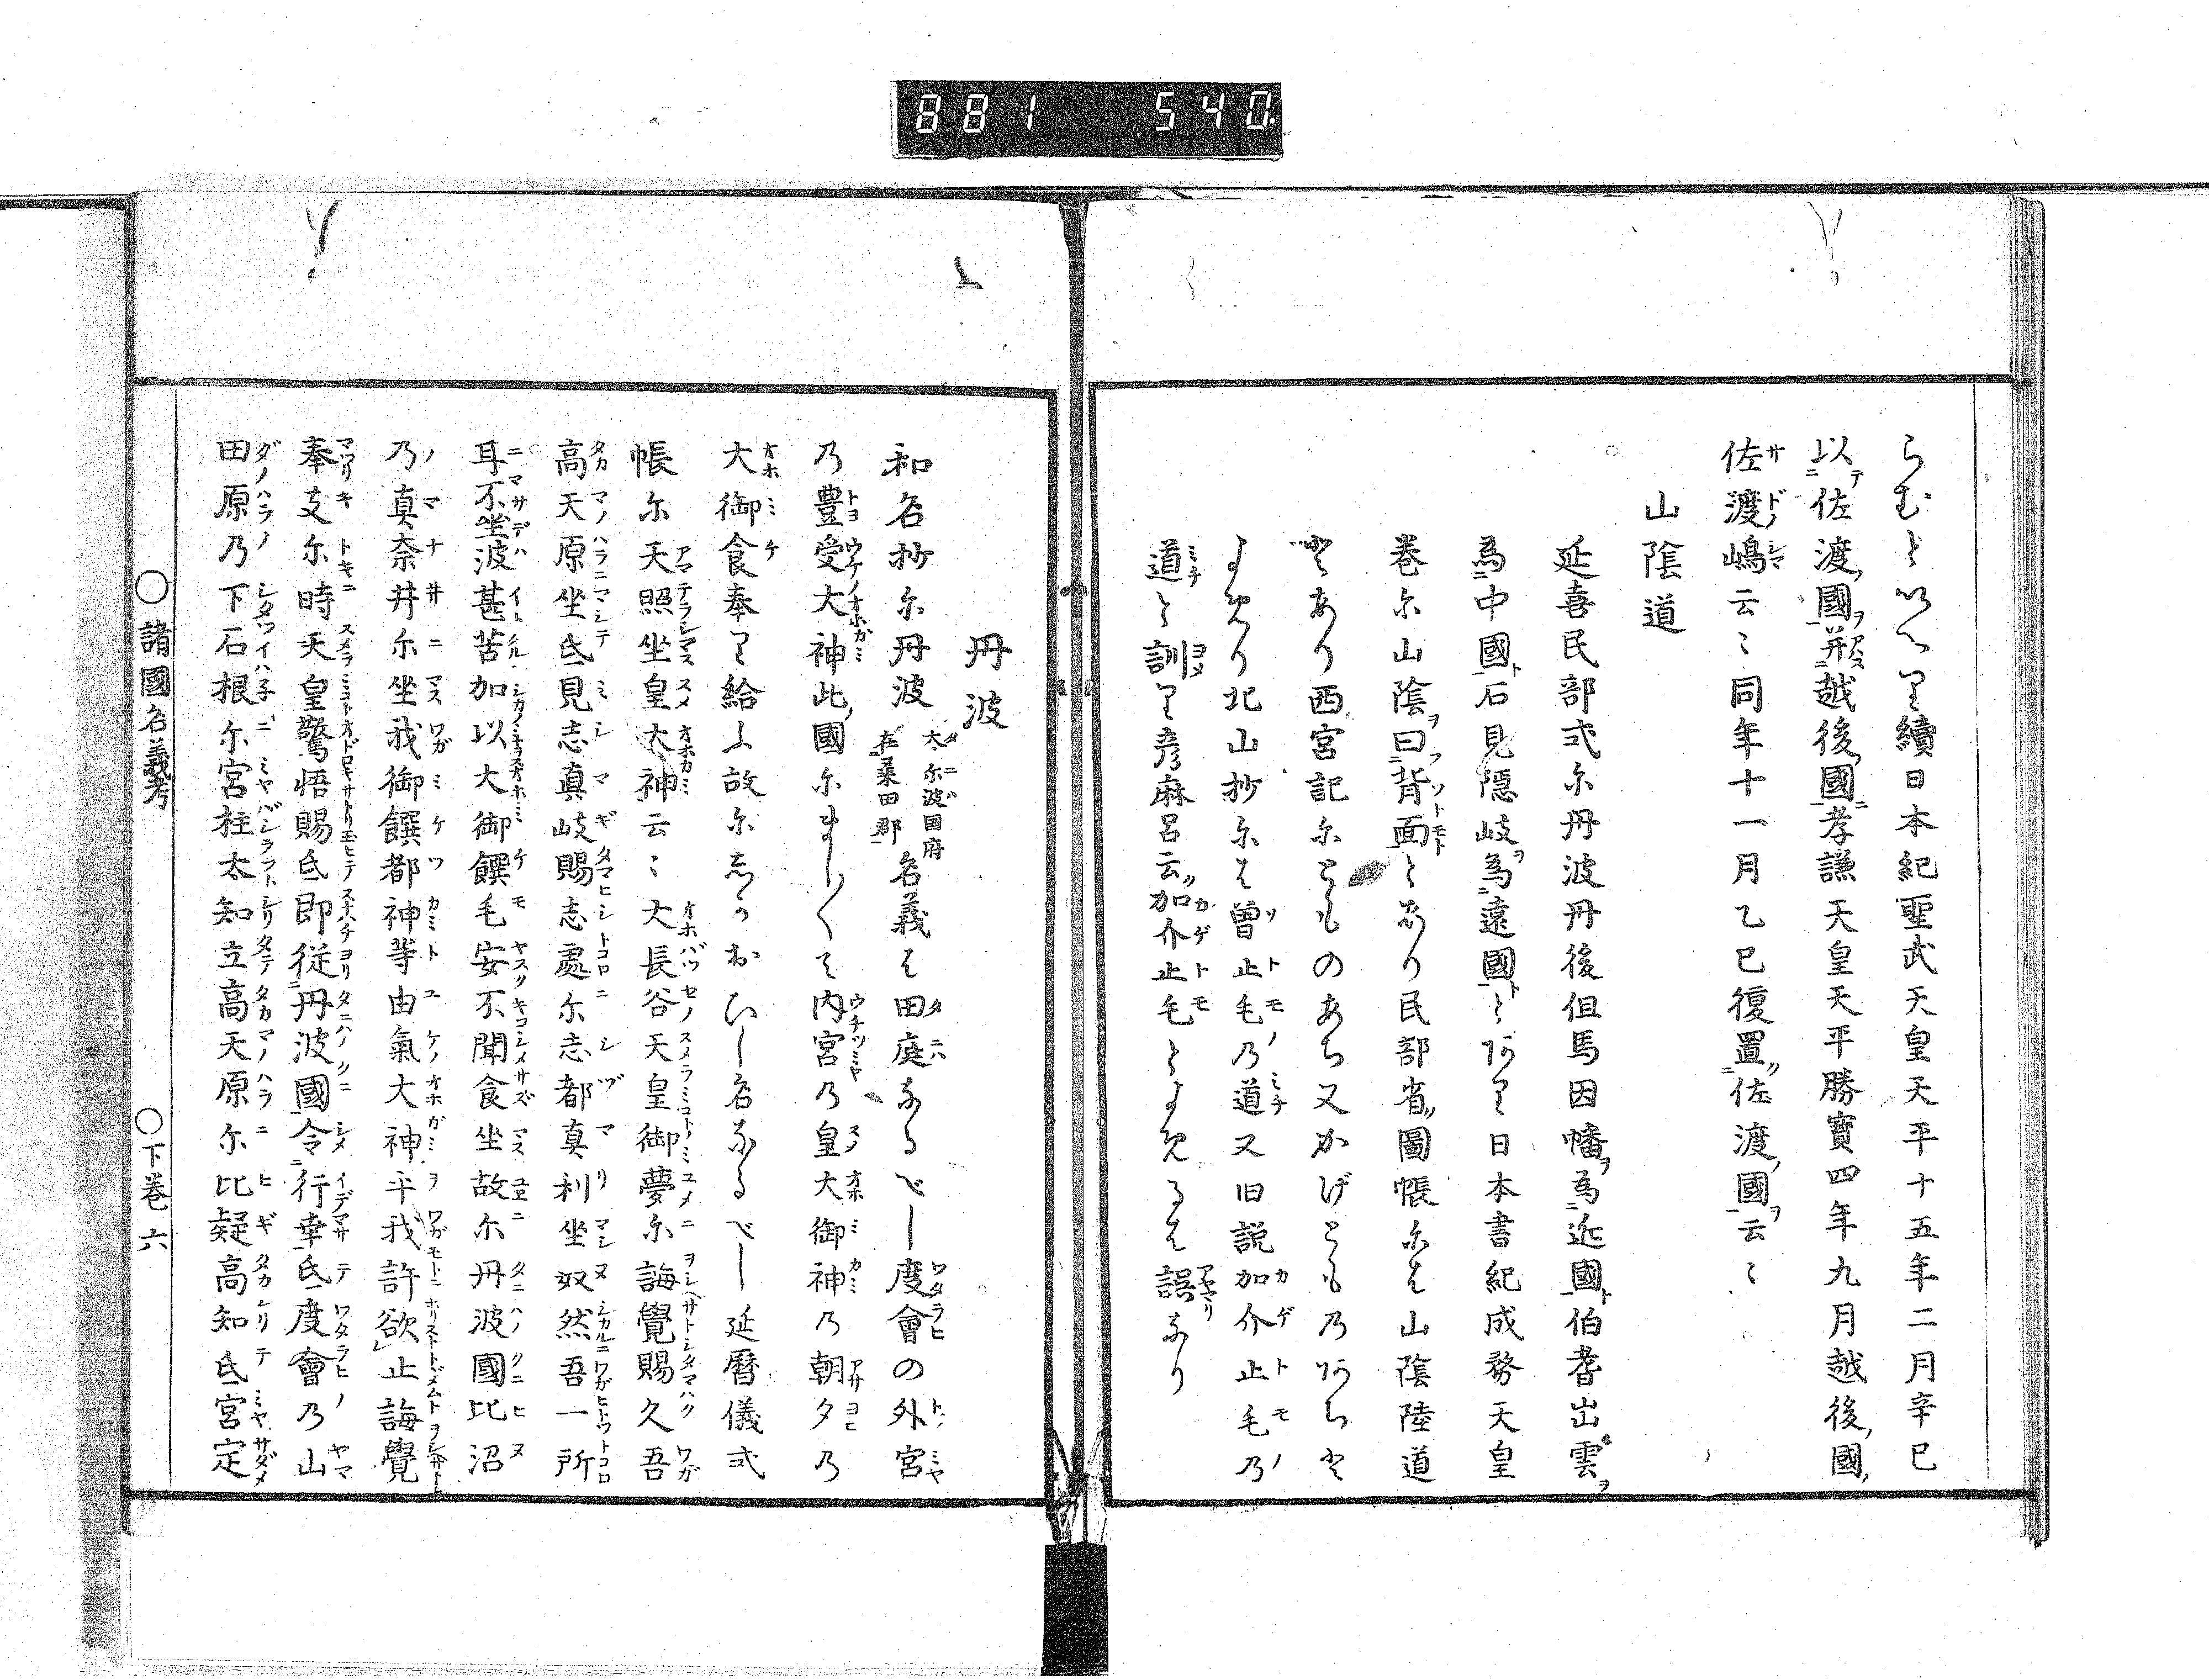 881 540
らむといへり續日本紀聖武天皇天平十五年二月辛巳
以佐渡國并越後國孝謙天皇天平勝寶四年九月越後國
佐渡嶋云〻同年十一月乙巳復置佐渡國云〻
山陰道
延喜民部式尓丹波丹後但馬因幡為近國伯耆出雲
為中國石見隠岐為遠國とあり日本書紀成務天皇
巻尓山陰曰背面とあり民部省圖帳尓は山陰陸道
とあり西宮記尓ともの
よめり北山抄尓は曽止毛乃道又旧説加介止毛乃
道と訓り彦麻呂云加介止毛とよめるは誤なり
丹波
和名抄尓丹波太尓波国府在桑田郡名義は田庭なるべし度會の外宮
乃豊受大神此國尓まし〳〵て内宮乃皇大御神乃朝夕乃
大御食奉り給ふ故尓しかおひし名なるべし延暦儀式
帳尓天照坐皇大神云〻大長谷天皇御夢尓誨覺賜久吾
高天原坐氐見志真岐賜志處尓志都真利坐奴然吾一所
耳不坐波甚苦加以大御饌毛安不聞食坐故尓丹波國比沼
乃真奈井尓坐我御饌都神等由氣大神乎我許欲止誨覺
奉支尓時天皇驚悟賜氐即従丹波國令行幸氐度會乃山
田原乃下石根尓宮柱太知立高天原尓比疑高知氐宮定
○諸國名義考
○下巻 六